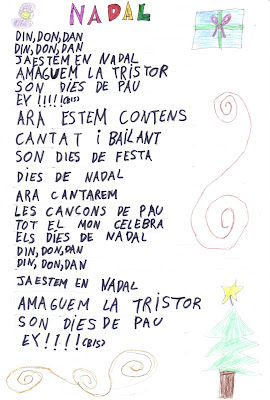 NADAL
DIN, DON, DAN
DIN, DON, DAN
JAESTEM EN NADAL
AMAGUEM LA TRISTOR
SON DIES DE PAU
EY !!!! (BIS)
ARA ESTEM CONTENS
CANTAT i BAILANT
SON DIES DE FESTA
DIES DE NADAL
ARA CANTAREM
LES CANCONS DE PAU
TOT EL MON CELEBRA
ELS DIES DE NADAL
DIN, DON, DAN
DIN, DON, DAN
JAESTEM EN NADAL
AMAGUEM LA TRISTOR
SON DIES DE PAU
EY!!!! (BIS)